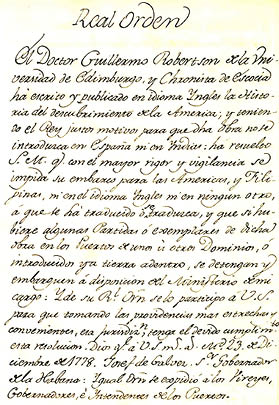 Real Orden
El Doctor Guillermo Robertson de la Uni-
versidad de Edimburgo, y Chronista de Escocia
ha escrito y publicado en idioma Ingles la Histo-
ria del descubrimiento de la America; y tenien-
do el Rey justos motivos para que dha obra no se
introduzca en España ni en Indias: ha resuelto
S. M. q.e con el mayor rigor y vigilancia se
impida su embarco para las Americas, y Fili-
pinas, ni en el idioma Ingles ni en ningun otro,
a que se ha traducido ó traduzca; y que si hu-
biere algunas Partidas ó exemplares de dicha
obra en los Puertos de unos ú otros Dominios, ó
introducidos ya tierra adentro, se detengan y
embarguen á disposicion del Ministerio de mi
cargo: Y de su R.l Orn se lo participo a V.S.
para que tomando las providencias mas estrechas y
convenientes, en su jurisd.n tenga el devido cumplim.to
esta resolucion. Dios g.e a V.S. m.s a.s M.d 23 de Di-
ciembre de 1778. Josef de Galvez. S.r Gobernador
de la Habana: Igual Orn se expidió á los Vireyes,
Gobernadores, é Intendentes de los Puertos.